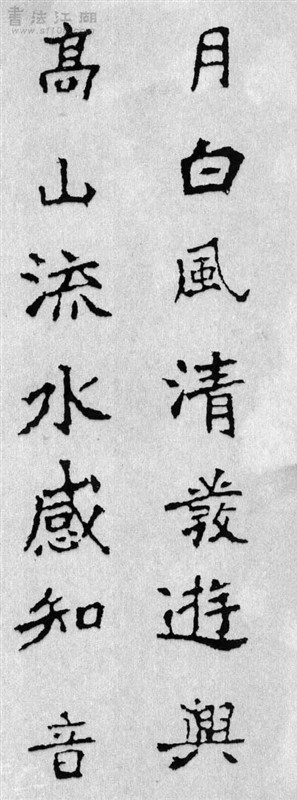 月白風清發遊興
高山流水感知音
書法江湖